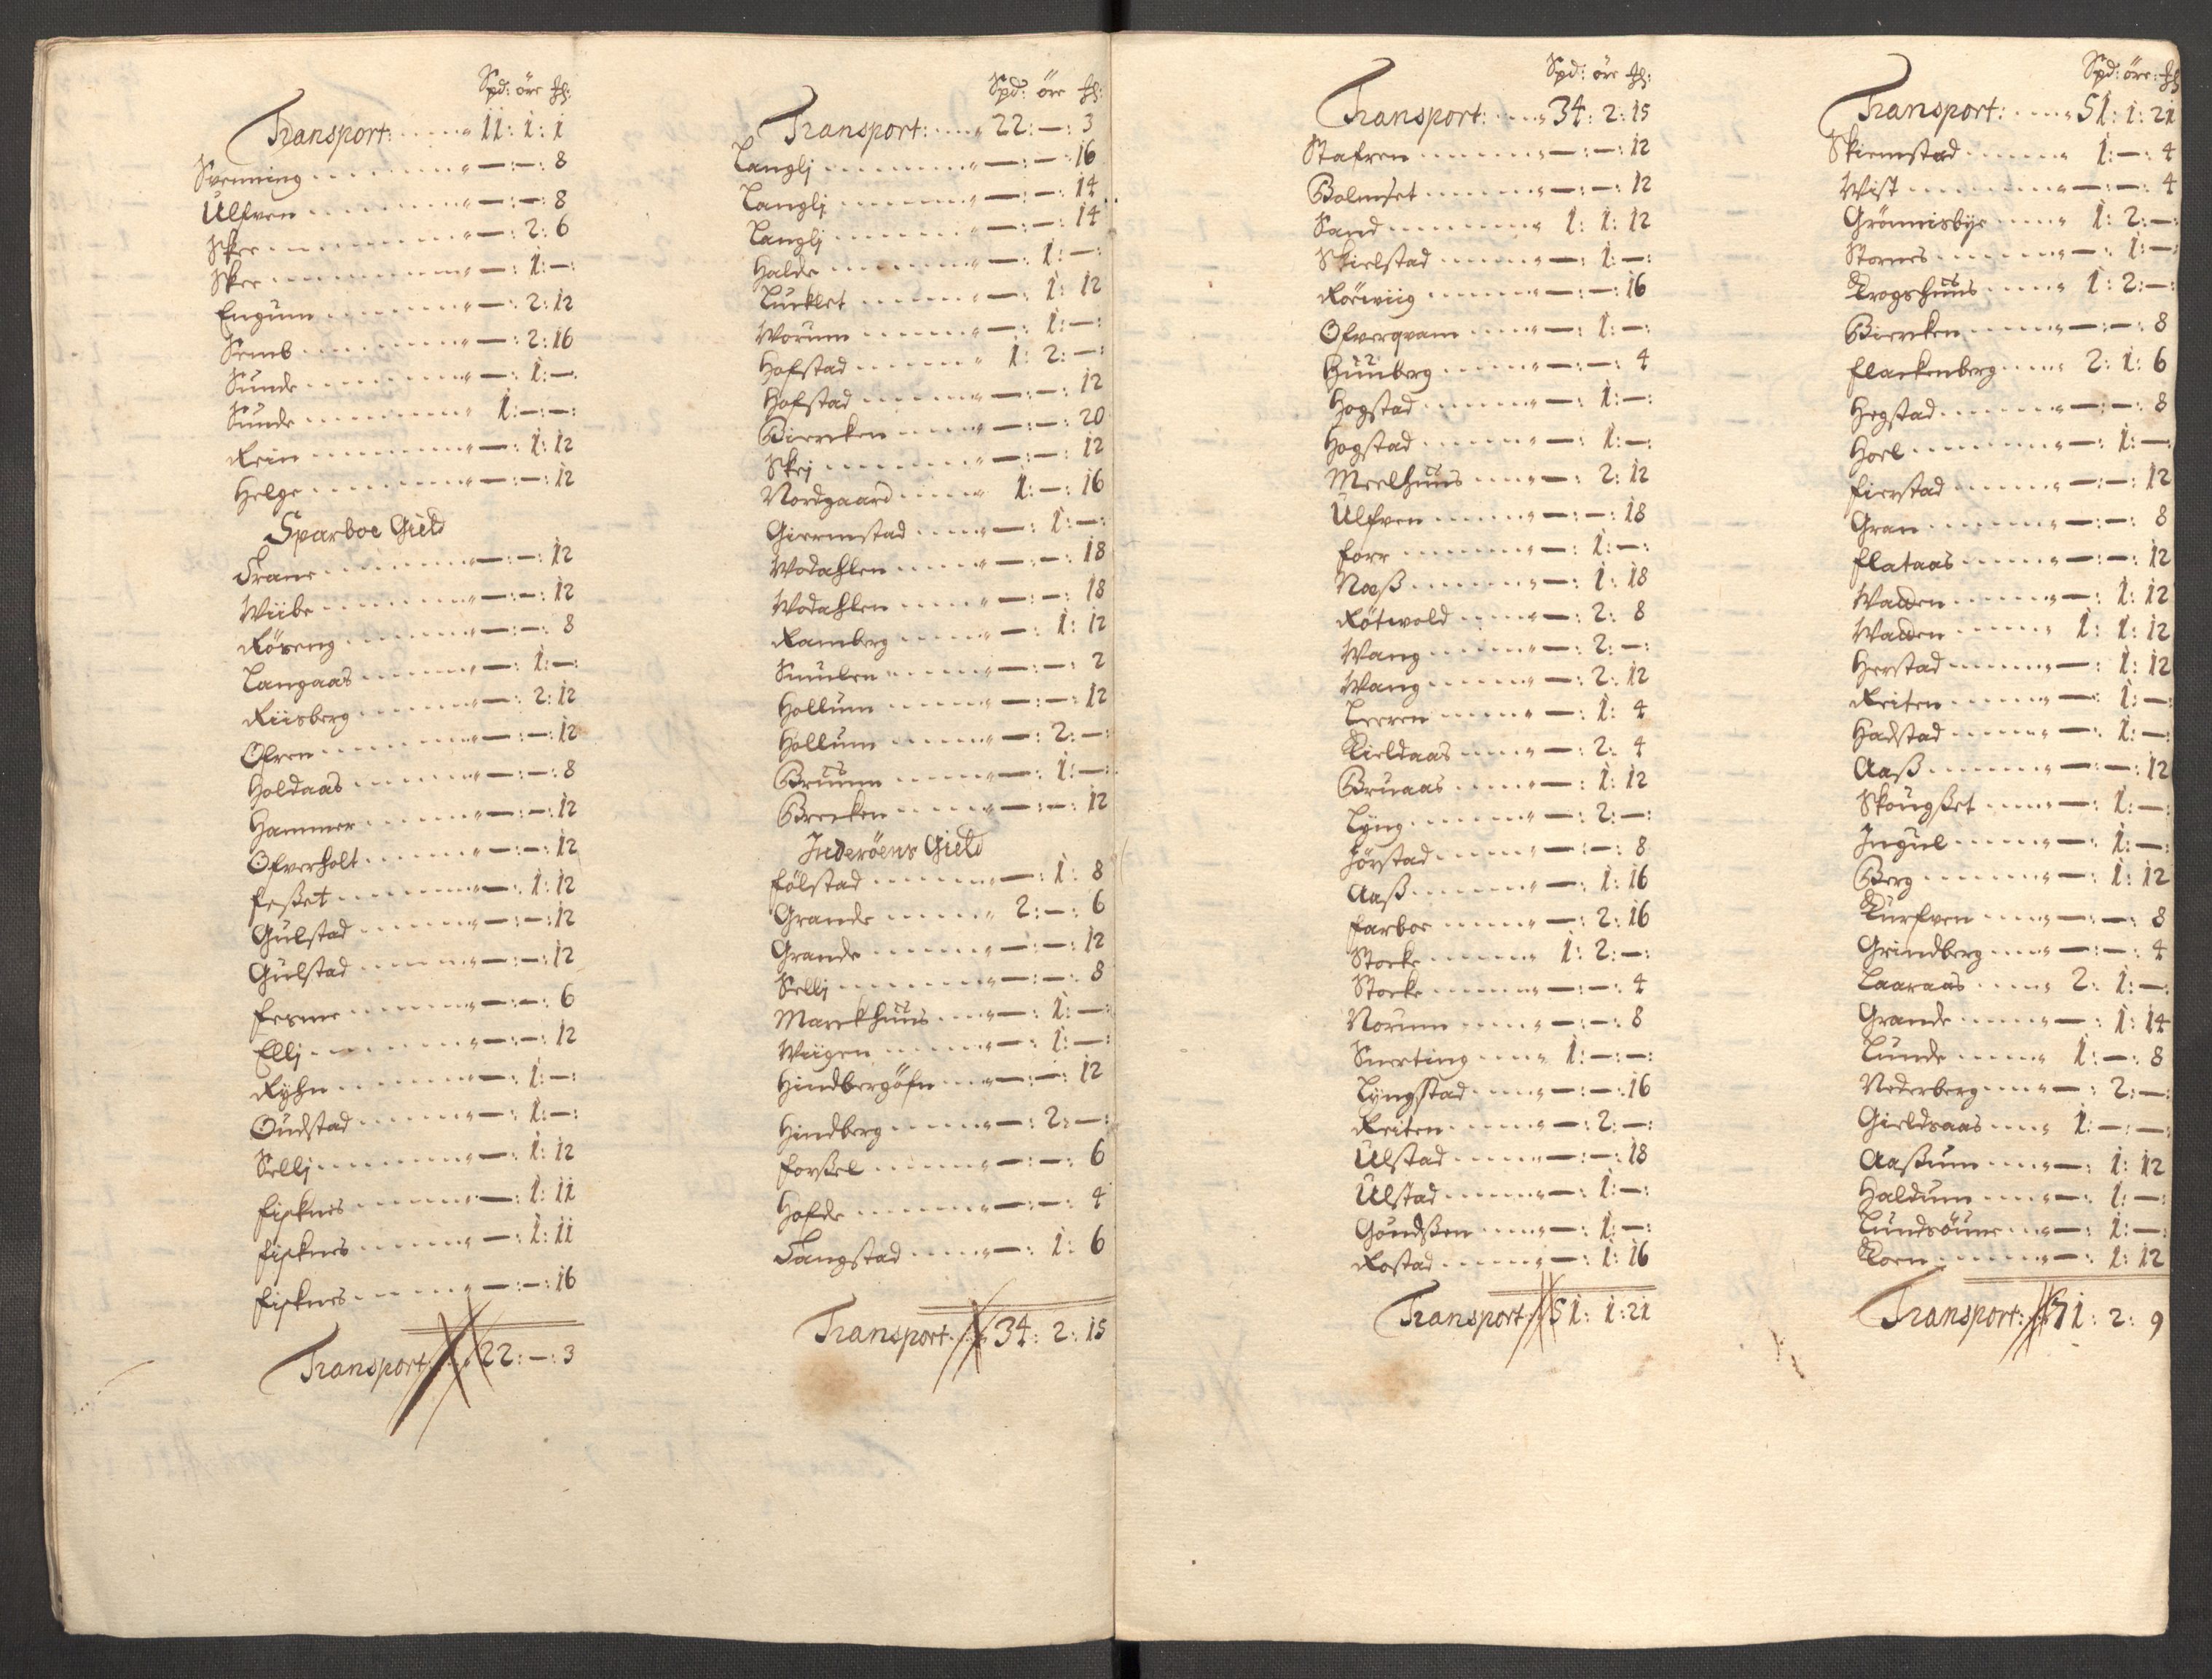 Spd: öre ꝉ:
Transport: 11: 1: 1
Svenning —:—: 8
Ulfven —:—: 8
Skee —: 2: 6
Skee —: 1:—:
Engum —: 2: 12
Semb —: 2: 16
Sunde —: 1:—:
Sunde 1:—:—:
Rein —: 1: 12
Helge —:—: 12
Sparboe Gield
Trane —:—: 12
Wiibe —:—: 12
Röseng —:—: 8
Langaas —: 1:—:
Riisberg —: 2: 12
Ofren —:—: 12
Holdaas —:—: 8
Hammer —:—: 12
Ofverholt —:—: 12
Feßet —: 1: 12
Gulstad —:—: 12
Gulstad —:—: 12
Fesme —:—: 6
Ellj —:—: 12
Ryhn —: 1:—:
Oudstad —: 1:—:
Sellj —: 1: 12
Fisknes —: 1: 11
Fisknes —: 1: 11
Fisknes —:—: 16
Transport: 22:—: 3
Spd: öre ꝉ:
Transport: 22:—: 3
Langlj —:—: 16
Langlj —:—: 14
Langlj —:—: 14
Halde —: 1:—:
Lucklet —: 1: 12
Worum —: 1:—:
Hofstad 1: 2:—:
Hofstad —:—: 12
Biercken —:—: 20
Skej —:—: 12
Nordgaard 1:—: 16
Giermstad —: 1:—:
Wodahlen —:—: 18
Wodahlen —:—: 18
Ramberg —: 1: 12
Smulen —:—: 2
Hollum —:—: 12
Hollum —: 2:—:
Bruum —: 1:—:
Brecken —:—: 12
Inderöens Gield
Fölstad —: 1: 8
Grande 2:—: 6
Grande —:—: 12
Sellj —:—: 8
Marckhuus —: 1:—:
Wiigen —: 1:—:
Hindbergöfn —:—: 12
Hindberg —: 2:—:
Forßel —:—: 6
Hofde —:—: 4
Tangstad —: 1: 6
Transport: 34: 2: 15
Spd: öre ꝉ:
Transport: 34: 2: 15
Stafren —:—: 12
Bolmset —:—: 12
Sand 1: 1: 12
Skielstad —: 1:—:
Röeviig —:—: 16
Ofverqvam —: 1:—:
Huuberg —:—: 4
Hogstad —: 1:—:
Hogstad —: 1:—:
Meelhuus —: 2: 12
Ulfven —:—: 18
Forr —: 1:—:
Næß —: 1: 18
Rötwold —: 2: 8
Wang —: 2:—:
Wang —: 2: 12
Leeren —: 1: 4
Kieldaas —: 2: 4
Bruaas —: 1: 12
Lyng —: 2:—:
Jörstad —:—: 8
Aaß —: 1: 16
Farboe —: 2: 16
Stocke 1: 2:—:
Stocke —:—: 4
Norum —:—: 8
Snerting 1:—:—:
Lyngstad —:—: 16
Reiten —: 2:—:
Ulstad —:—: 18
Ulstad —: 1:—:
Goudßen —: 1:—:
Rostad —: 1: 16
Transport: 51: 1: 21
Spd: öre: ꝉ
Transport: 51: 1: 21
Skiemstad 1:—: 4
Wist —:—: 4
Grönnisbye 1: 2:—:
Stornes —: 1:—:
Krogshuus 1: 2:—:
Biercken —:—: 8
Flackenberg 2: 1: 6
Hegstad —:—: 8
Hoel —: 1:—:
Fierstad —:—: 12
Gran —:—: 8
Flataas —:—: 12
Wadden —: 1: 12
Wadden 1: 1: 12
Herstad —: 1: 12
Reiten —: 1:—:
Hadstad —: 1:—:
Aaß —:—: 12
Skougßet —: 1:—:
Ingul —: 1:—:
Berg —: 1: 12
Kurfven —:—: 8
Grindberg —:—: 4
Laaraas 2: 1:—:
Grande —: 1: 14
Lunde 1:—: 8
Nederberg —: 2:—:
Gieldsaas 1:—:—:
Aaßum —: 1: 12
Haldum —: 1:—:
Lundsöum —: 1:—:
Koen —: 1: 12
Transport: 71: 2: 9